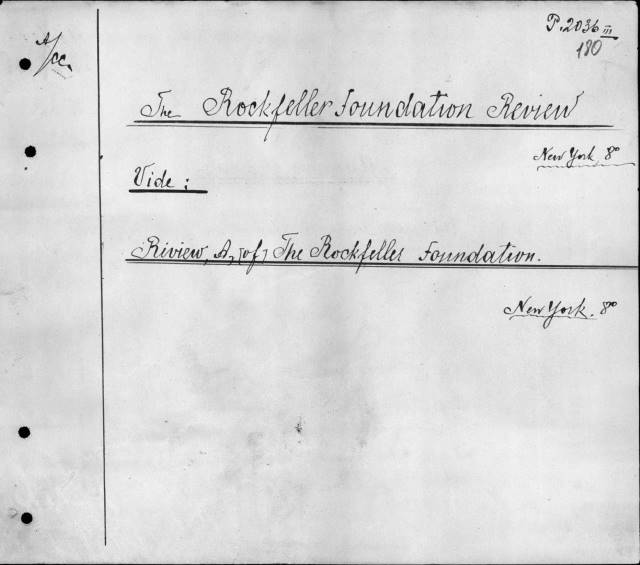 P. 2036 III
180
A/cc.
The Rockfeller Foundation Review
New York 8°
Vide:
Riview, A, [of] The Rockfeller Foundation.
New York. 8°